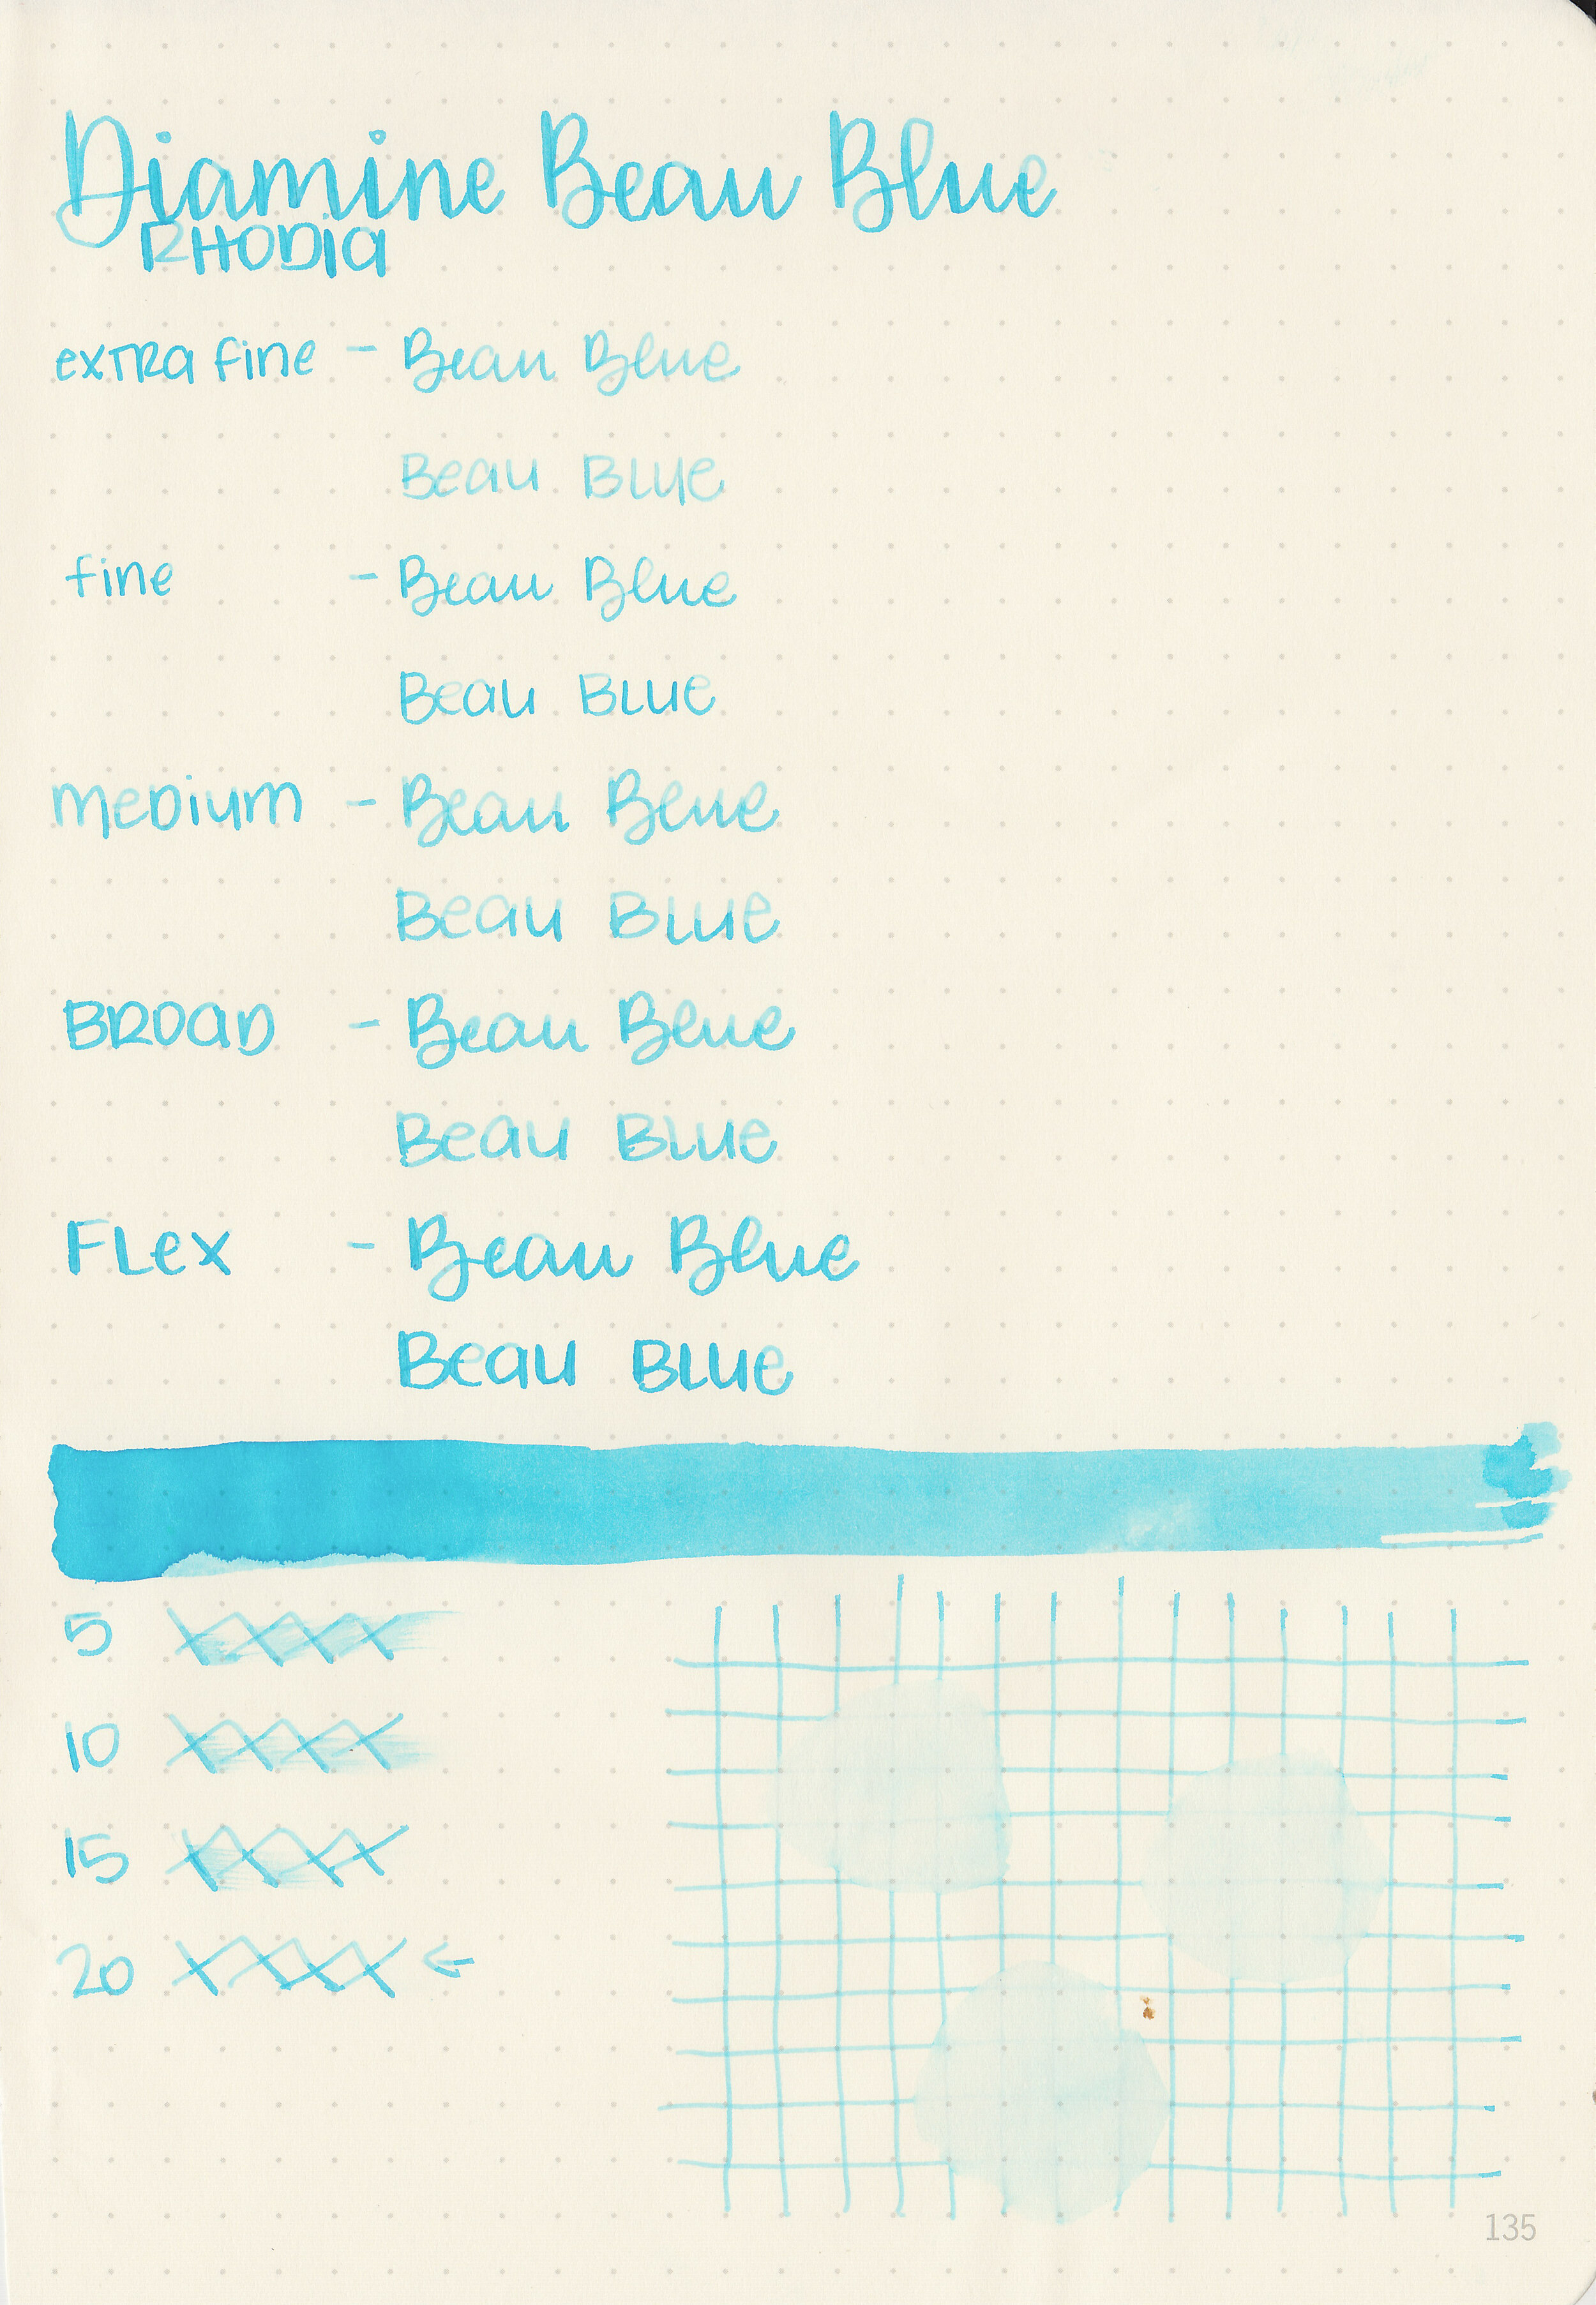 Diamine Beau Blue
RHODIA
extra fine - Beau Blue
Beau Blue
fine - Beau Blue
Beau Blue
medium - Beau Blue
Beau Blue
BROAD - Beau Blue
Beau Blue
FLex - Beau Blue
Beau Blue
5
10
15
20 ←
135